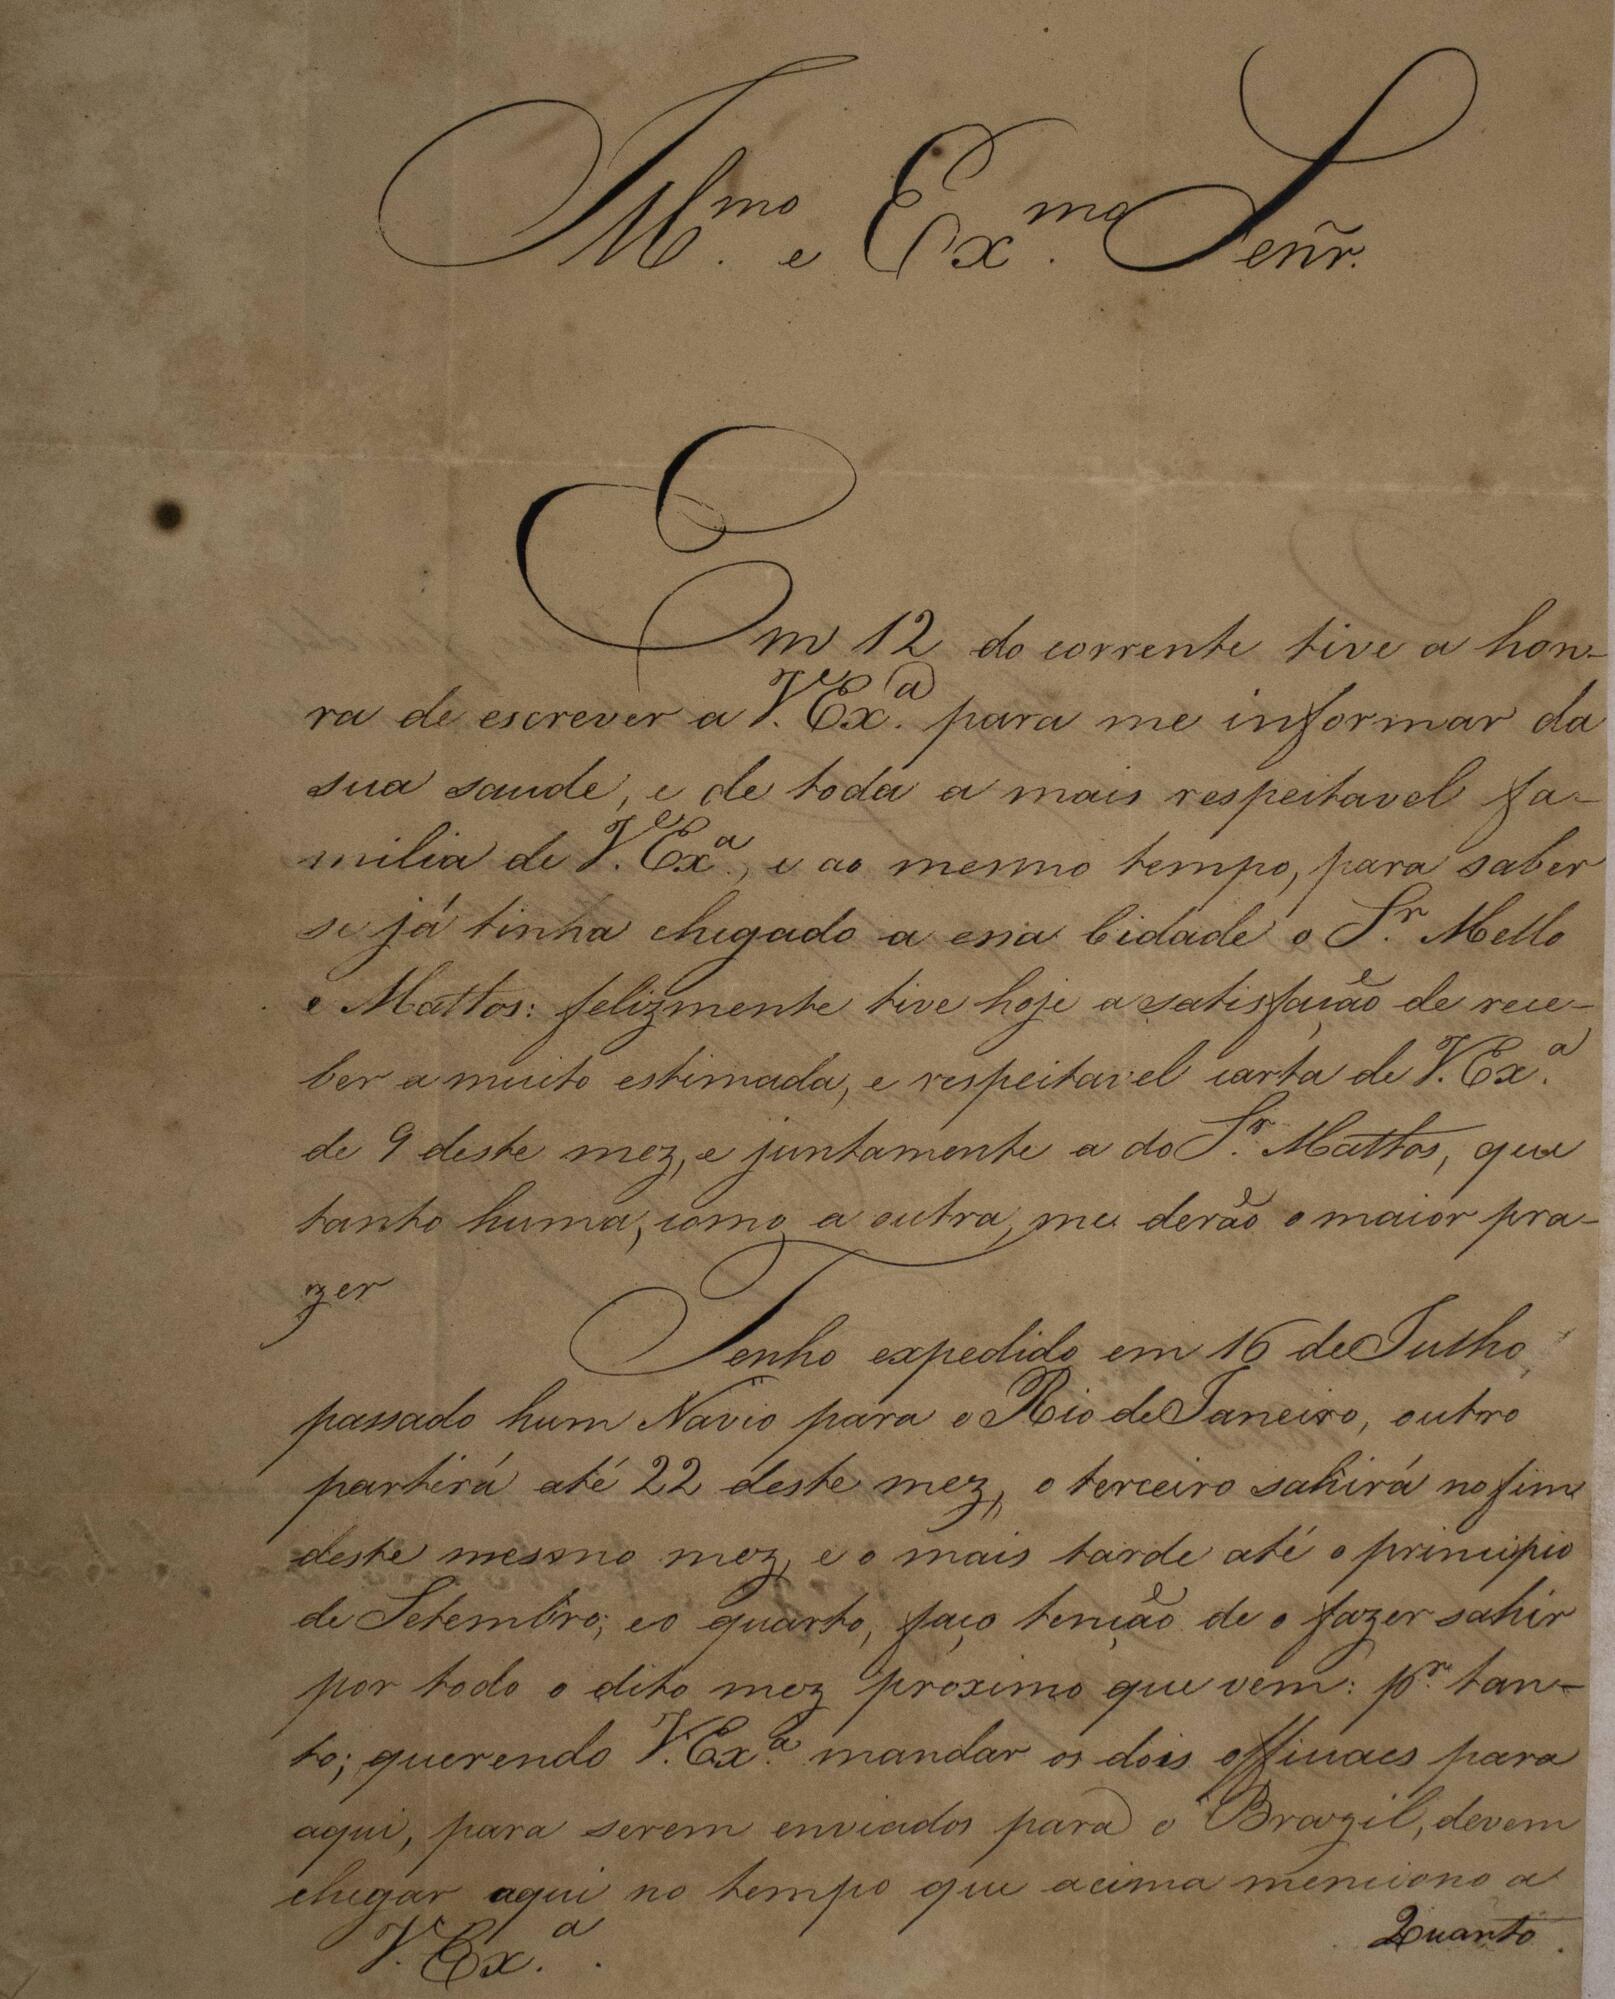 Illmo. e Exmo. Señr.
Em 12 do corrente tive a hon-
ra de escrever a V. Exa. para me informar da
sua saude, e de toda a mais respeitavel fa-
milia de V. Exa., e ao mesmo tempo, para saber
se já tinha chegado a essa Cidade o Sr. Mello
e Mattos: felizmente tive hoje a satisfação de rece-
ber a muito estimada, e respeitavel carta de V. Exa.
de 9 deste mez, e juntamente a do Sr. Mattos, que
tanto huma, como a outra, me derão o maior pra-
zer
Tenho expedido em 16 de Julho
passado hum Navio para o Rio de Janeiro, outro
partirá até 22 deste mez, o terceiro sahirá no fim
deste mesmo mez, e o mais tarde até o principio
de Setembro; e o quarto, faço tenção de o fazer sahir
por todo o dito mez próximo que vem: pr. tan-
to; querendo V. Exa. mandar os dois officiaes para
aqui, para serem enviados para o Brazil, devem
chegar aqui no tempo que acima menciono a
V. Exa. .
Quanto